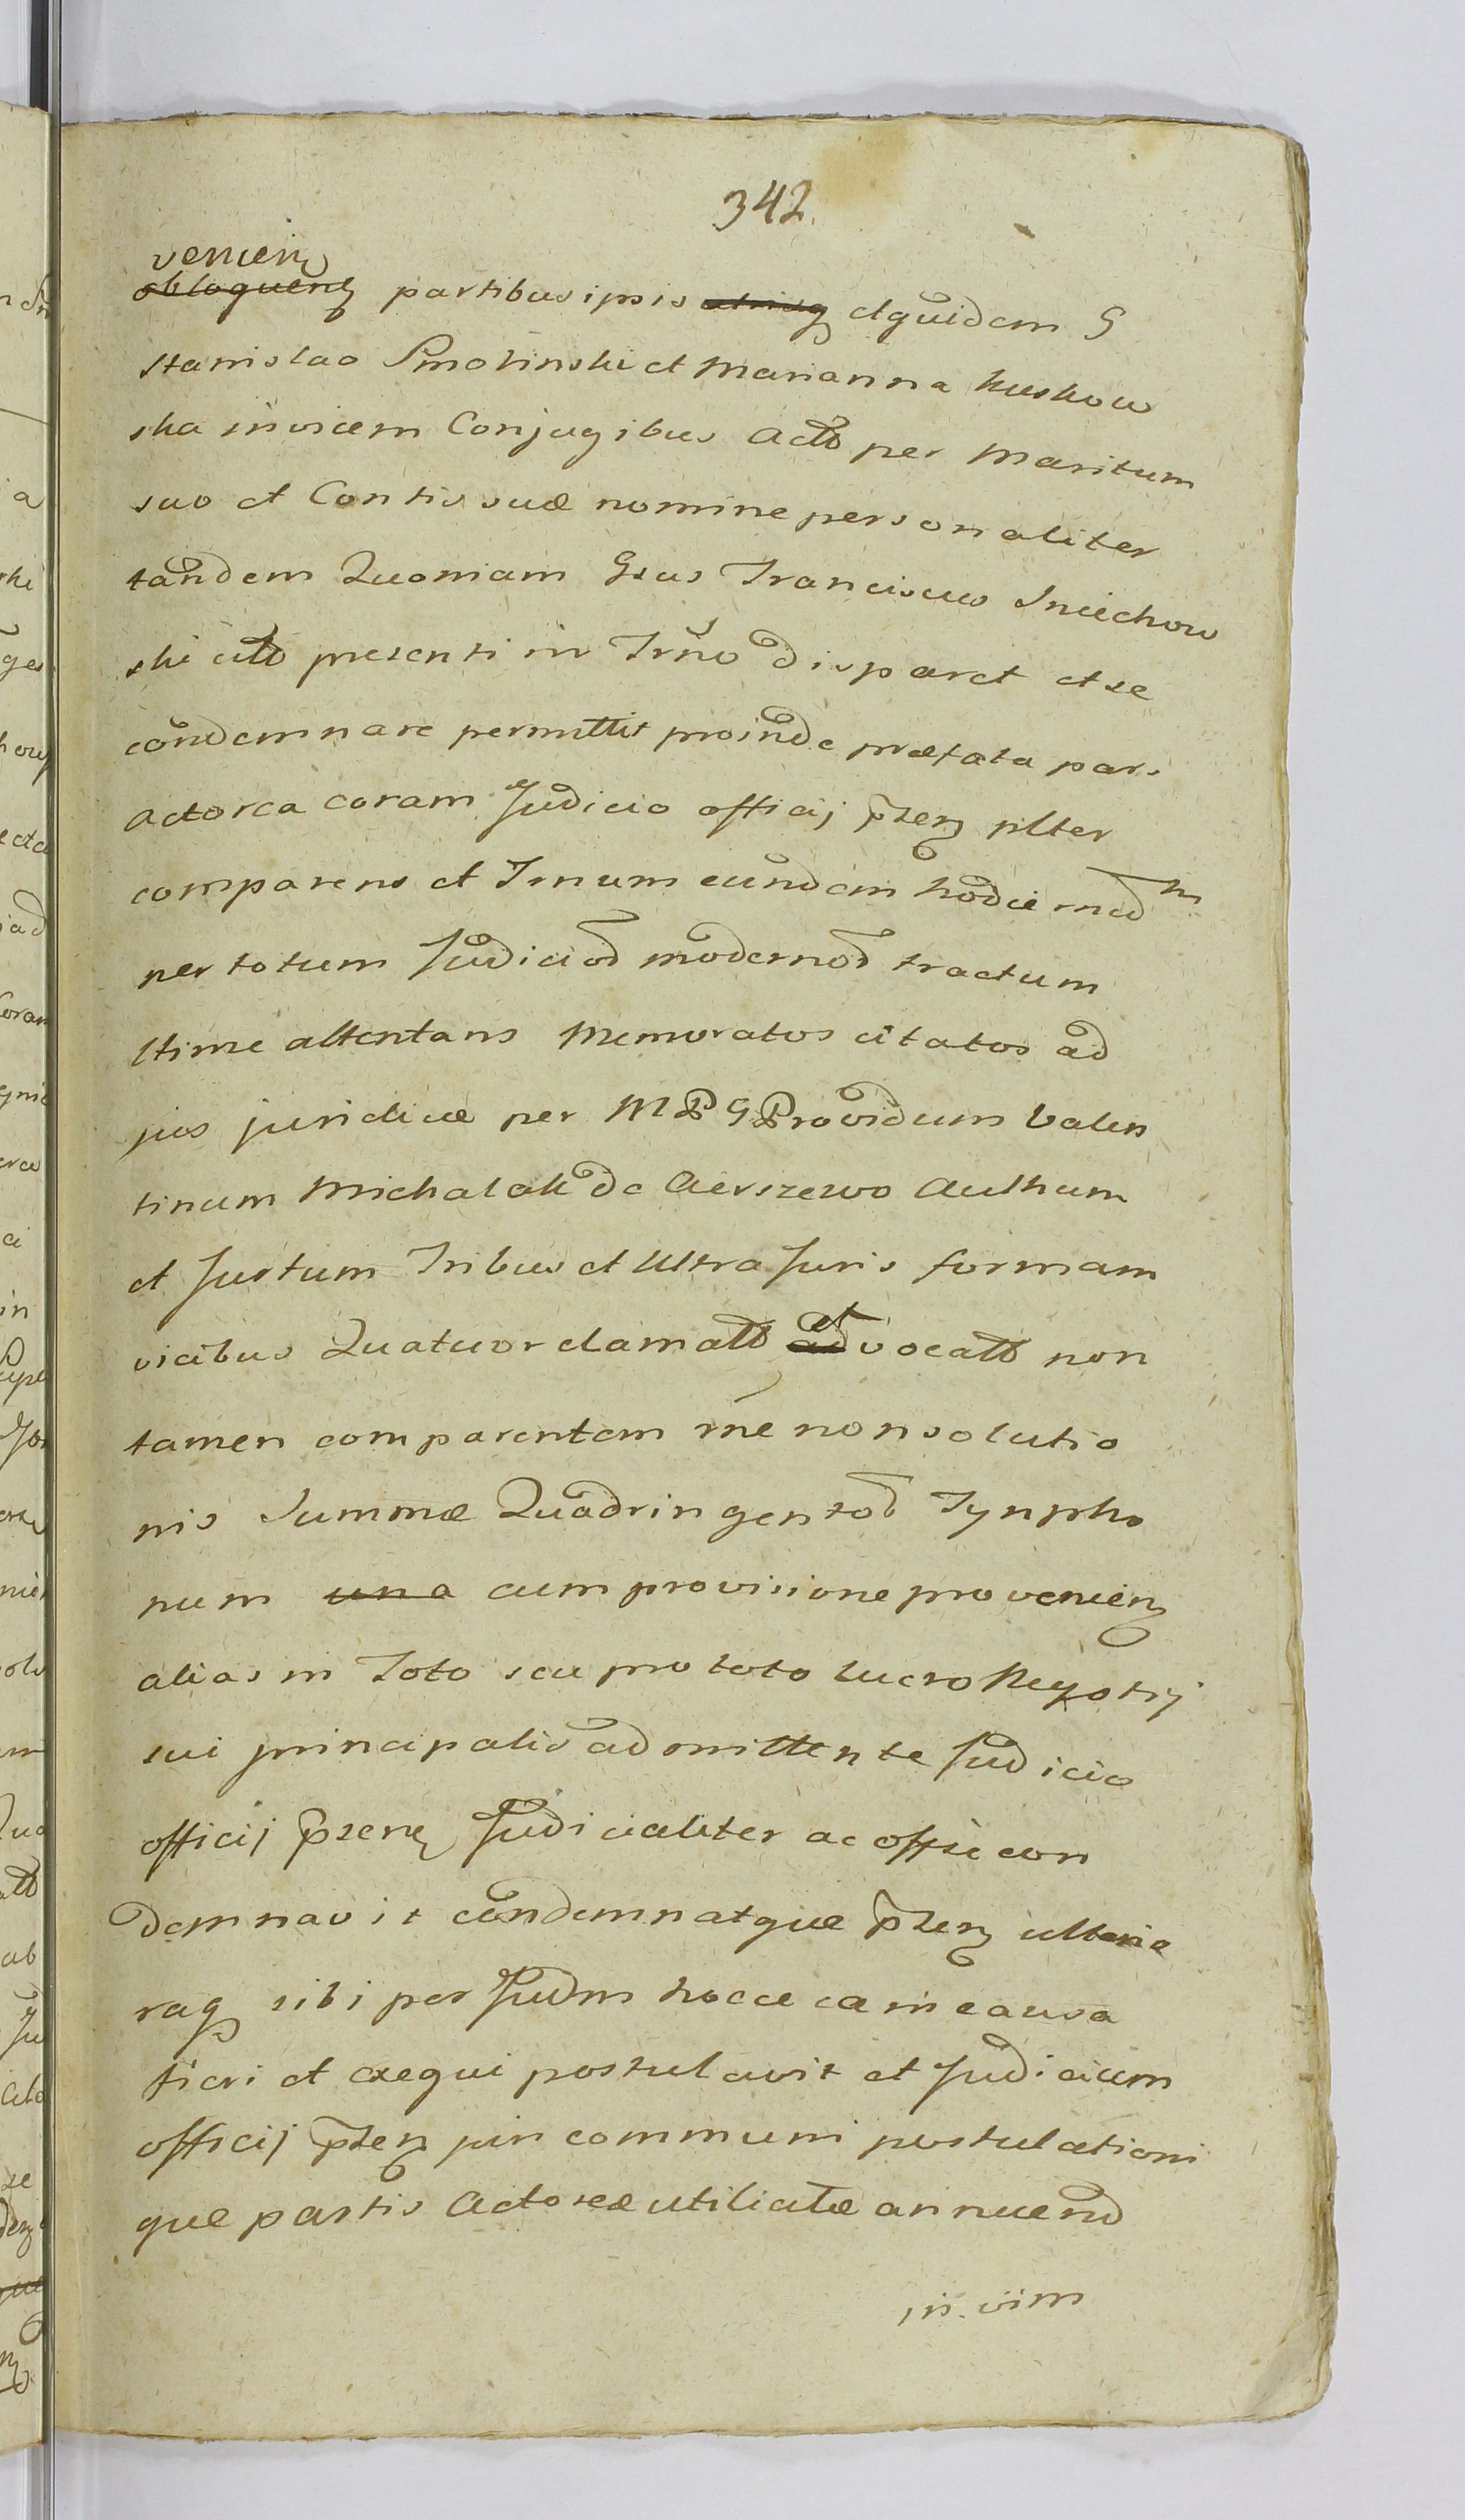 342.
venien
obloquen partibus ipsis utrisq etquidem G
Stanislao Smolinski et Marianna Kuskow
ska invicem Conjugibus Actb per Maritum
suo et Contis suæ nomine personaliter
tandem Quoniam Gsus Franciscus Sniechow
ski citb presenti in Trno disparet et se
condemnare permittit proinde præfata pars
actorea coram Judicio officij pzen plter
comparens et Trnum eundem hodiernd m
per totum Judiciod modernod tractum
ltime attentans Memoratos citatos ad
jus juridice per MPG Providum Valen
tinum Michalak de Cierszewo Aulkum
et Juxtum Tribus et Ultra Juris formam
vicibus Quatuor clamatb ad et vocatb non
tamen comparentem rne non solutio
nis Summæ Quadringentod Tynpho
num una cum provisione provenien
alias in Toto seu pro toto lucro Negotij
sui principalis admittente Judicio
officij pzen Judicialiter ac offse con
demnavit condemnatque pzen ulterio
raq sibi per Judm hocce ea in causa
fieri et exequi postulavit et Judicium
officij pzen juri communi postulationi
que partis Actoreæ utiliatæ annuend
in vim